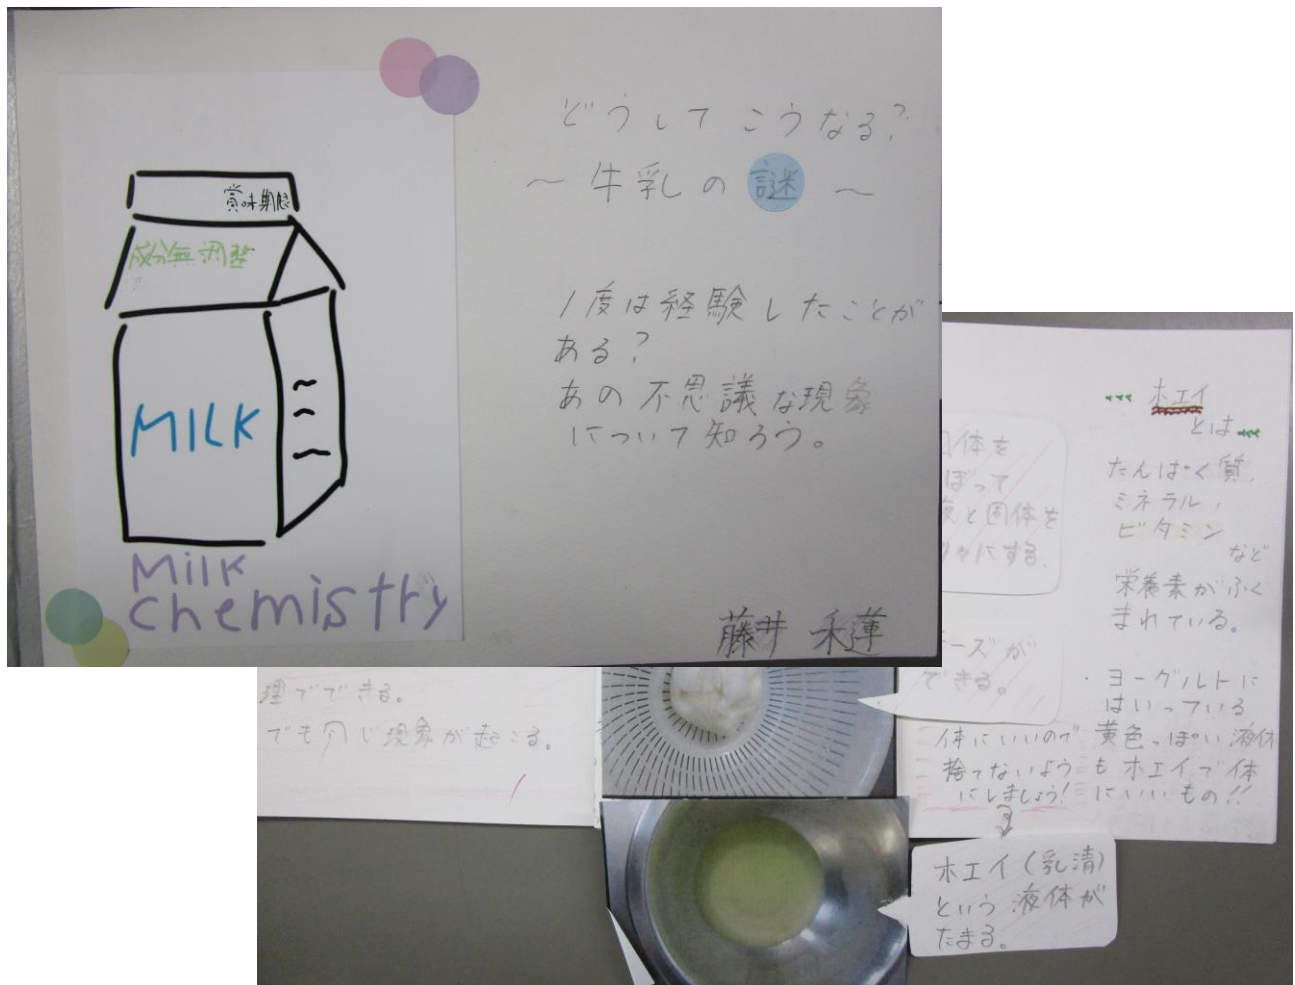 賞味期限
成分無調整
MILK
Milk
chemistry
どうして こうなる?
～ 牛乳の 謎 ～
1度は経験したことが
ある?
あの不思議な現象
について知ろう。
藤井 禾蓮
理でできる。
でも同じ現象が起こる。
固体を
ぼって
液と固体を
にする。
チーズが
できる。
ホエイ
とは
たんぱく質、
ミネラル、
ビタミン
など
栄養素がふく
まれている。
・ヨーグルトに
はいっている
黄色っぽい液体
もホエイで体
にいいもの!!
体にいいので
捨てないよう
にしましょう!
ホエイ(乳清)
という液体が
たまる。